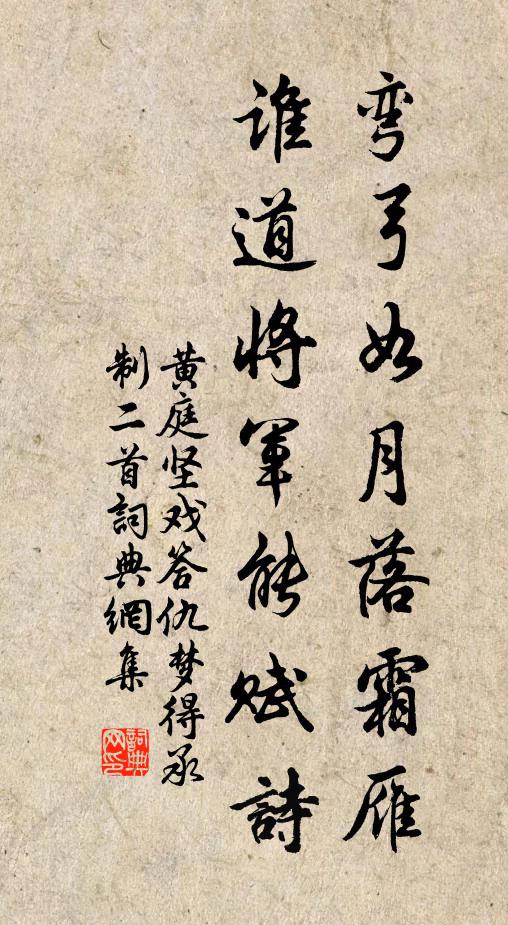 弯弓如月落霜雁
谁道将军能赋詩
黄庭坚戏答仇梦得承
制二首詞典網集
詞典
网印